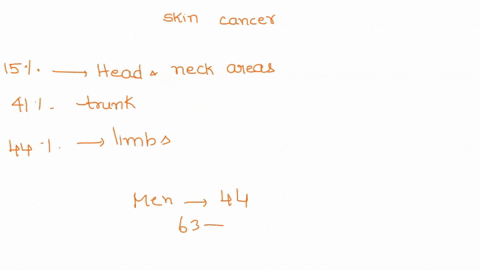 skin cancer
15%. → Head & neck areas
41%. trunk
44%. → limbs
Men → 44
63 —